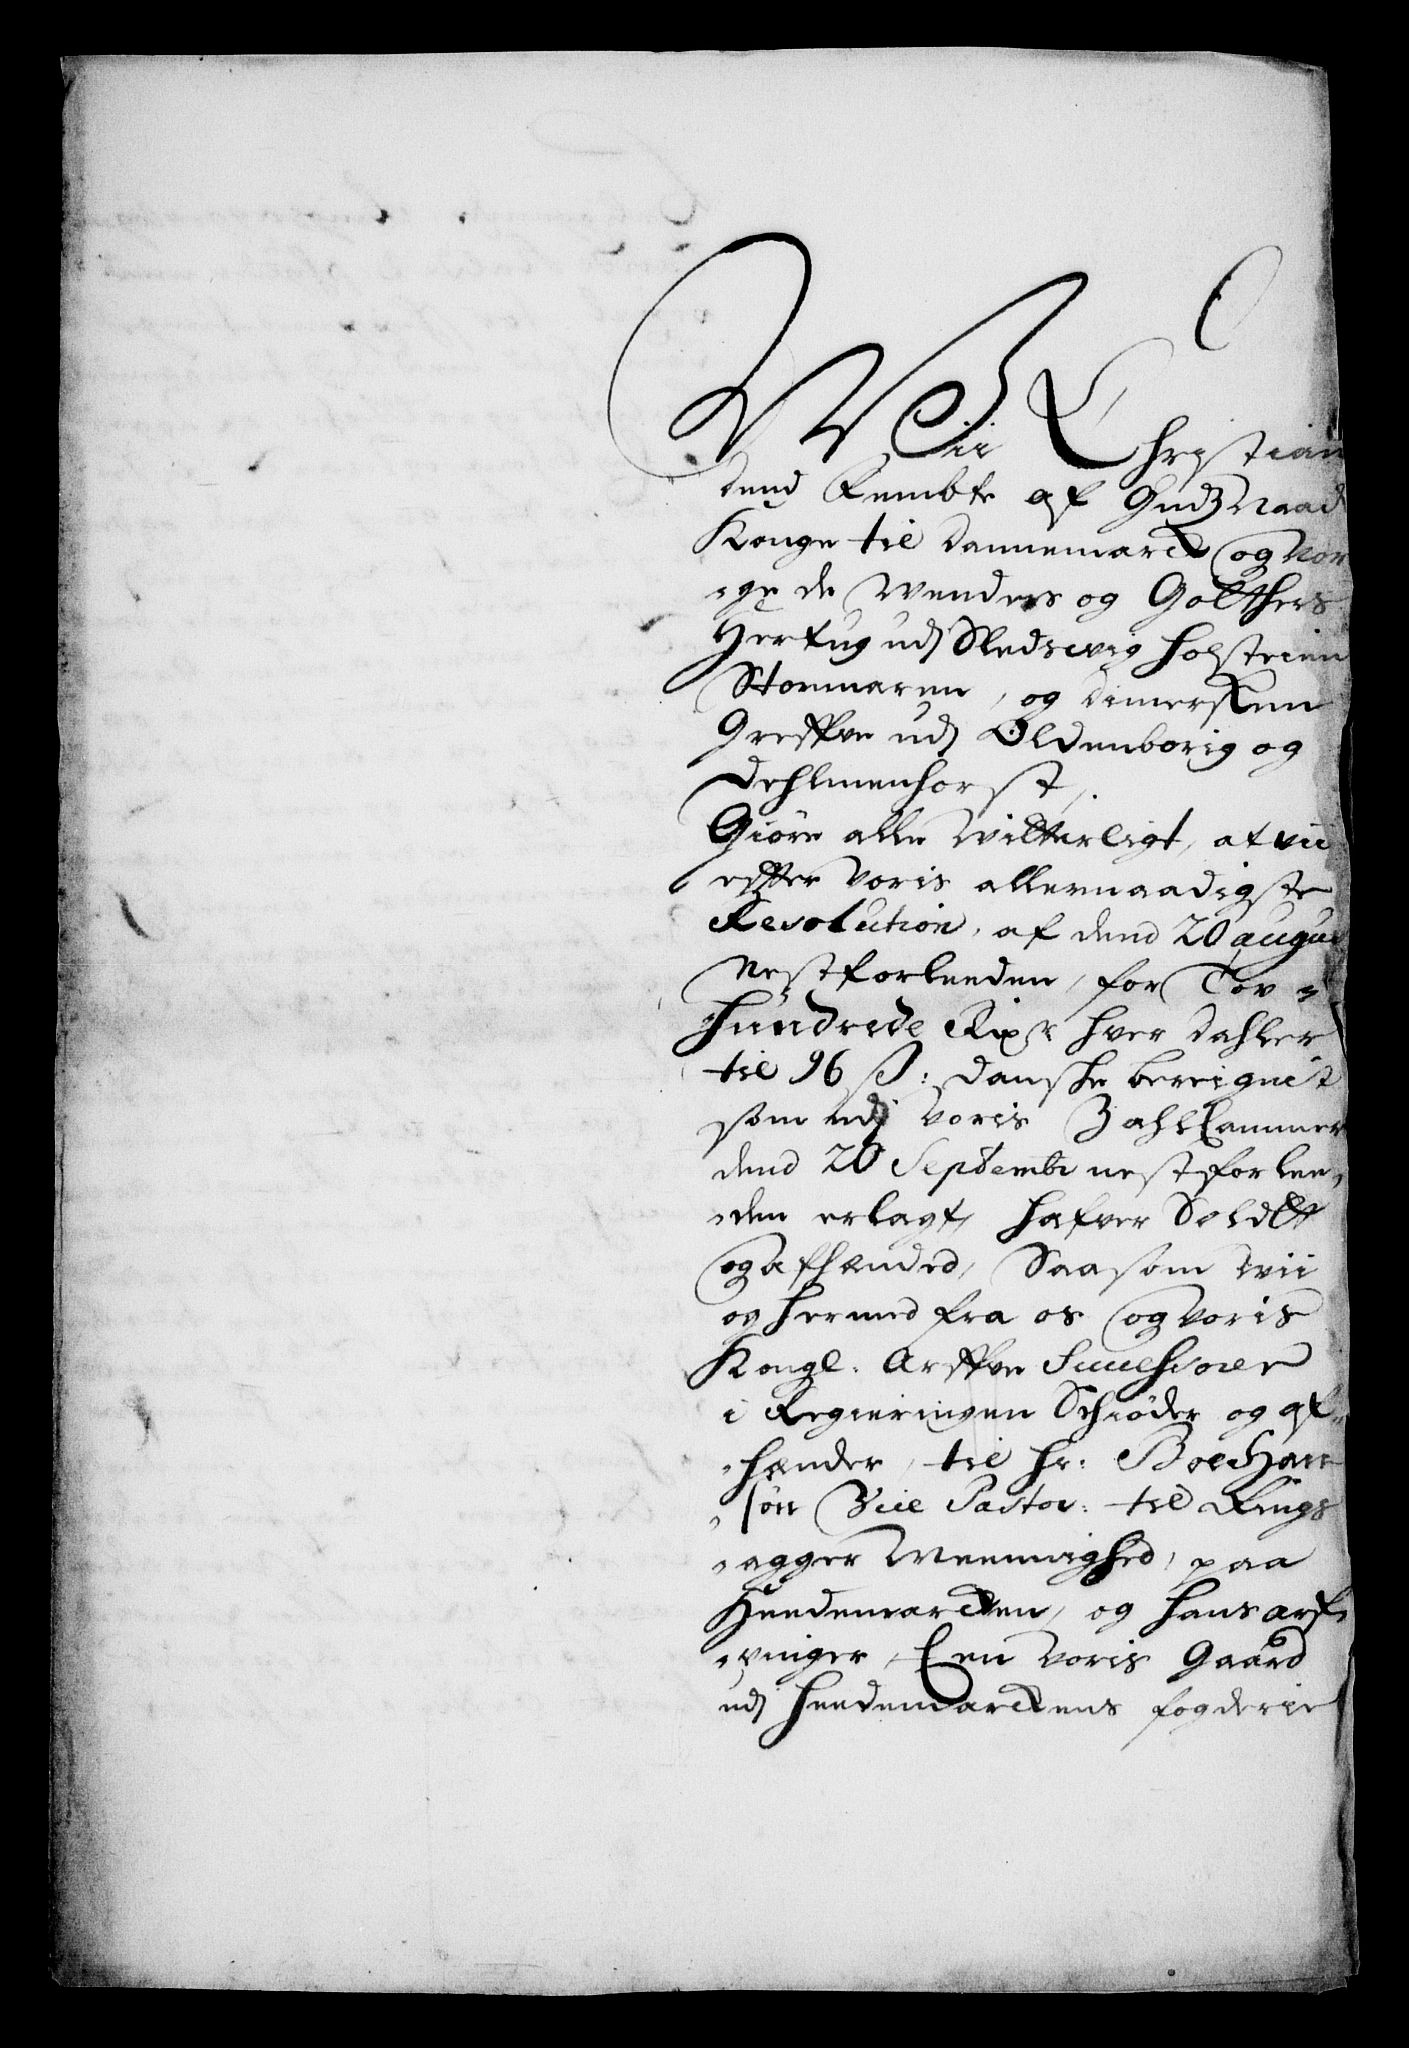 Wii Christian
dend Fembte af Gudz Naade
Konge til Dannemarck og Nor
-ge de Wenders og Gotthers
Hertug udj Sledswig Holsteien
Stormaren, og Dimersken
Greffve udj Oldenborig og
Dehlmenhorst,
Giøre alle Witterligt, at vii
effter Voris allernaadigste
Resolution, af dend 20 augus
Nestforleeden, for Tov
Hundrede Rixr hver Dahler
til 96 s: Danske bereignet
som udj Voris Zahlcammer
dend 20 Septembr nestforlee-
-den erlagt, hafver Soldtt
og afhænded, Saasom Wii
og hermed fra os og Voris
Kongl. Arffve Successorer
i Regieringen Schiøder og af-
-hænder, til hr: Boe Han
-søn Vice Pastor: til Rings
-agger Meenighed, paa
Heedemarcken, og hans arf-
-vinger, Een Voris Gaard
udj Heedemarckens fogderie